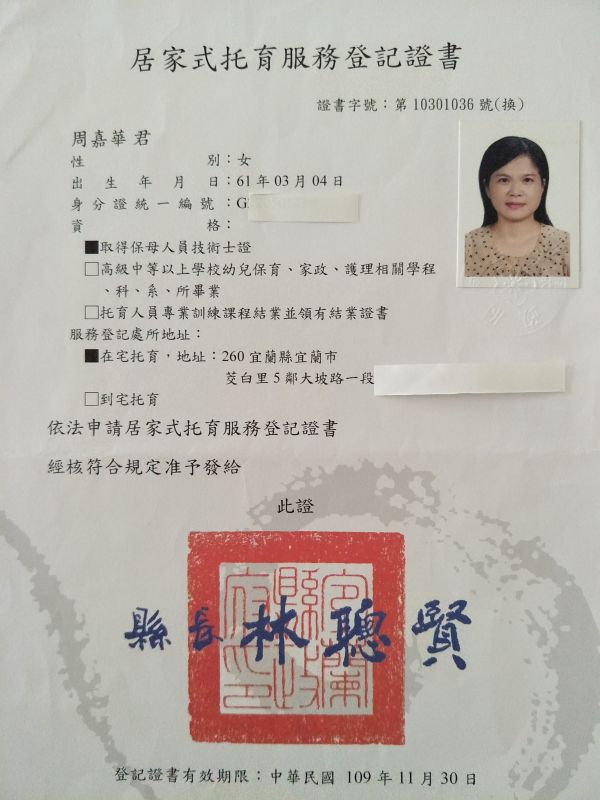 居家式托育服務登記證書
證書字號：第10301036號(換)
周嘉華君
性別：女
出生年月日：61年03月04日
身分證統一編號：G
資格：
■取得保母人員技術士證
□高級中等以上學校幼兒保育、家政、護理相關學程
、科、系、所畢業
□托育人員專業訓練課程結業並領有結業證書
服務登記處所地址：
■在宅托育，地址：260宜蘭縣宜蘭市
茭白里5鄰大坡路一段
□到宅托育
依法申請居家式托育服務登記證書
經核符合規定准予發給
此證
縣長林聰賢
登記證書有效期限：中華民國 109年11月30日